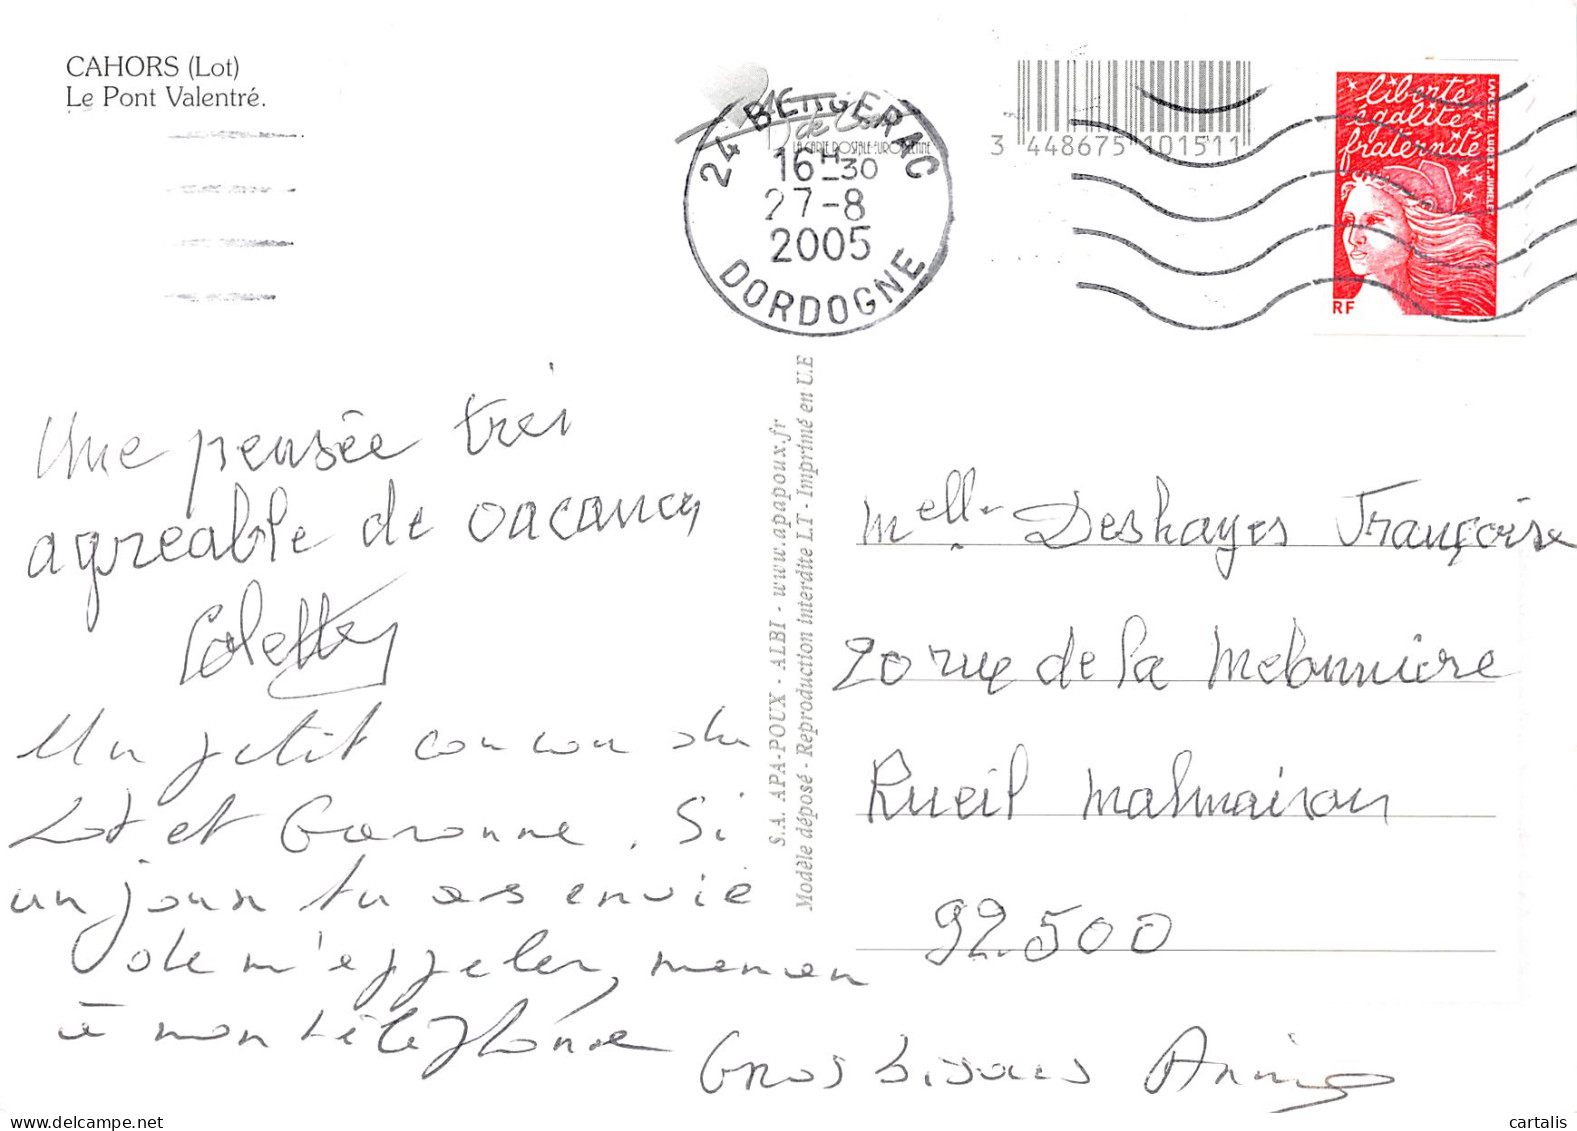 CAHORS (Lot)
Le Pont Valentré.
24 BERGERAC
16H30
27-8
2005
DORDOGNE
LA CARTE POSTALE EUROPEENNE
3 448675 101511
liberté
égalité
fraternité
LA POSTE LUQUET-JUMELET
RF
Une pensée très
agréable de vacances
Colette
Un petit coucou du
Lot et Garonne. Si
un jour tu as envie
de m'appeler, maman
à mon téléphone
Gros bisous
S.A. APA-POUX - ALBI - www.apapoux.fr
Modèle déposé - Reproduction interdite LT - Imprimé en U.E
Melle Deshayes Françoise
20 rue de la Melonniere
Rueil Malmaison
92500
www.delcampe.net
cartalis